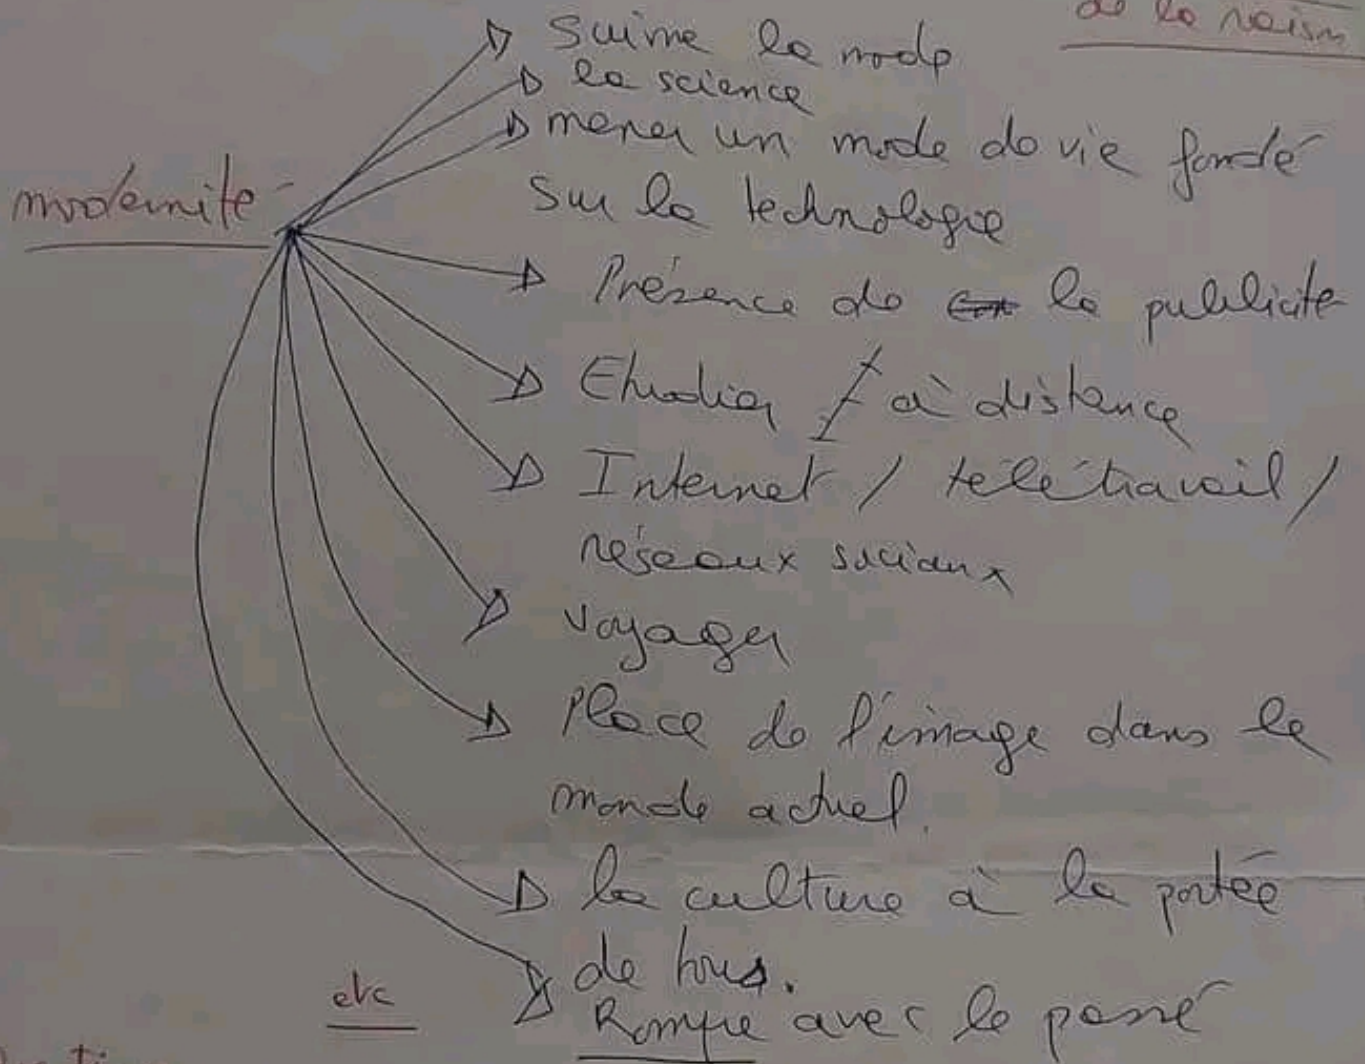 de la raison
suivre la mode
la science
mener un mode de vie fondé
modernité
sur la technologie
Présence de la publicité
Etudier / à distance
Internet / télétravail /
réseaux sociaux
voyager
Place de l'image dans le
monde actuel.
la culture à la portée
de tous.
etc
Rompre avec le passé